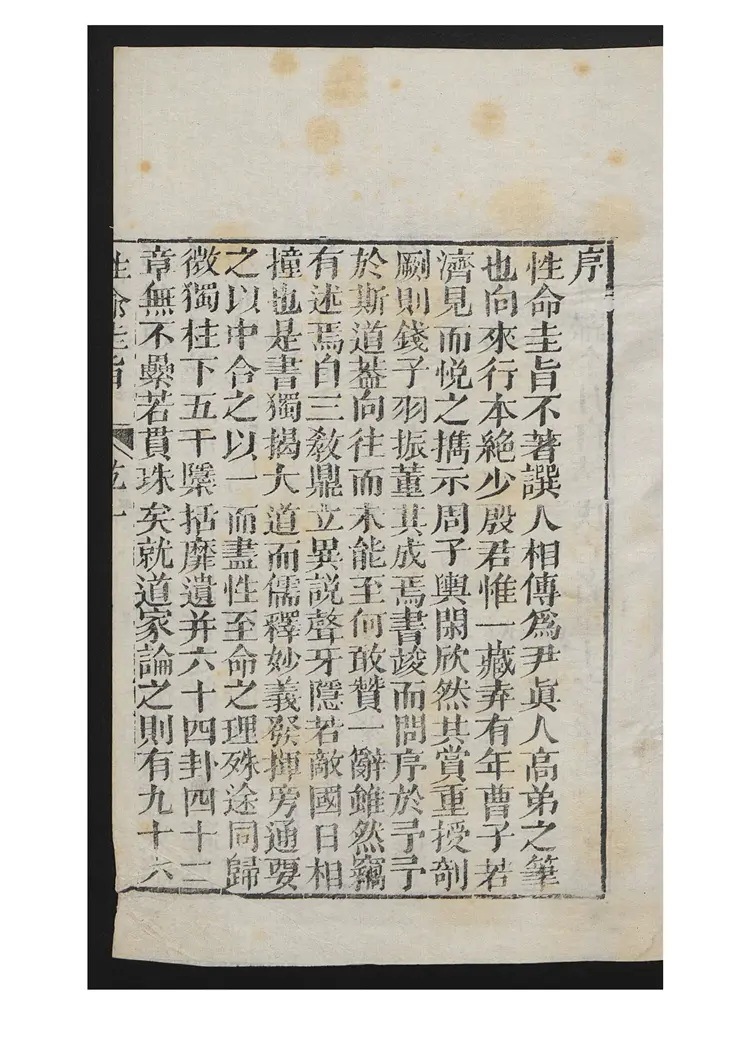 序
性命圭旨不著譔人相傳爲尹眞人高弟之筆
也向來行本絶少殷君惟一藏弆有年曹子若
濟見而悦之擕示周子輿閑欣然共賞重授剞
劂則錢子羽振董其成焉書竣而問序於予予
於斯道葢向往而未能至何敢贊一辭雖然竊
有述焉自三敎鼎立異説聱牙隱若敵國日相
撞也是書獨揭大道而儒釋妙義發揮旁通要
之以中合之以一而盡性至命之理殊途同歸
微獨柱下五千檃括靡遺并六十四卦四十二
章無不纍若貫珠矣就道家論之則有九十六
性命圭旨 乾一